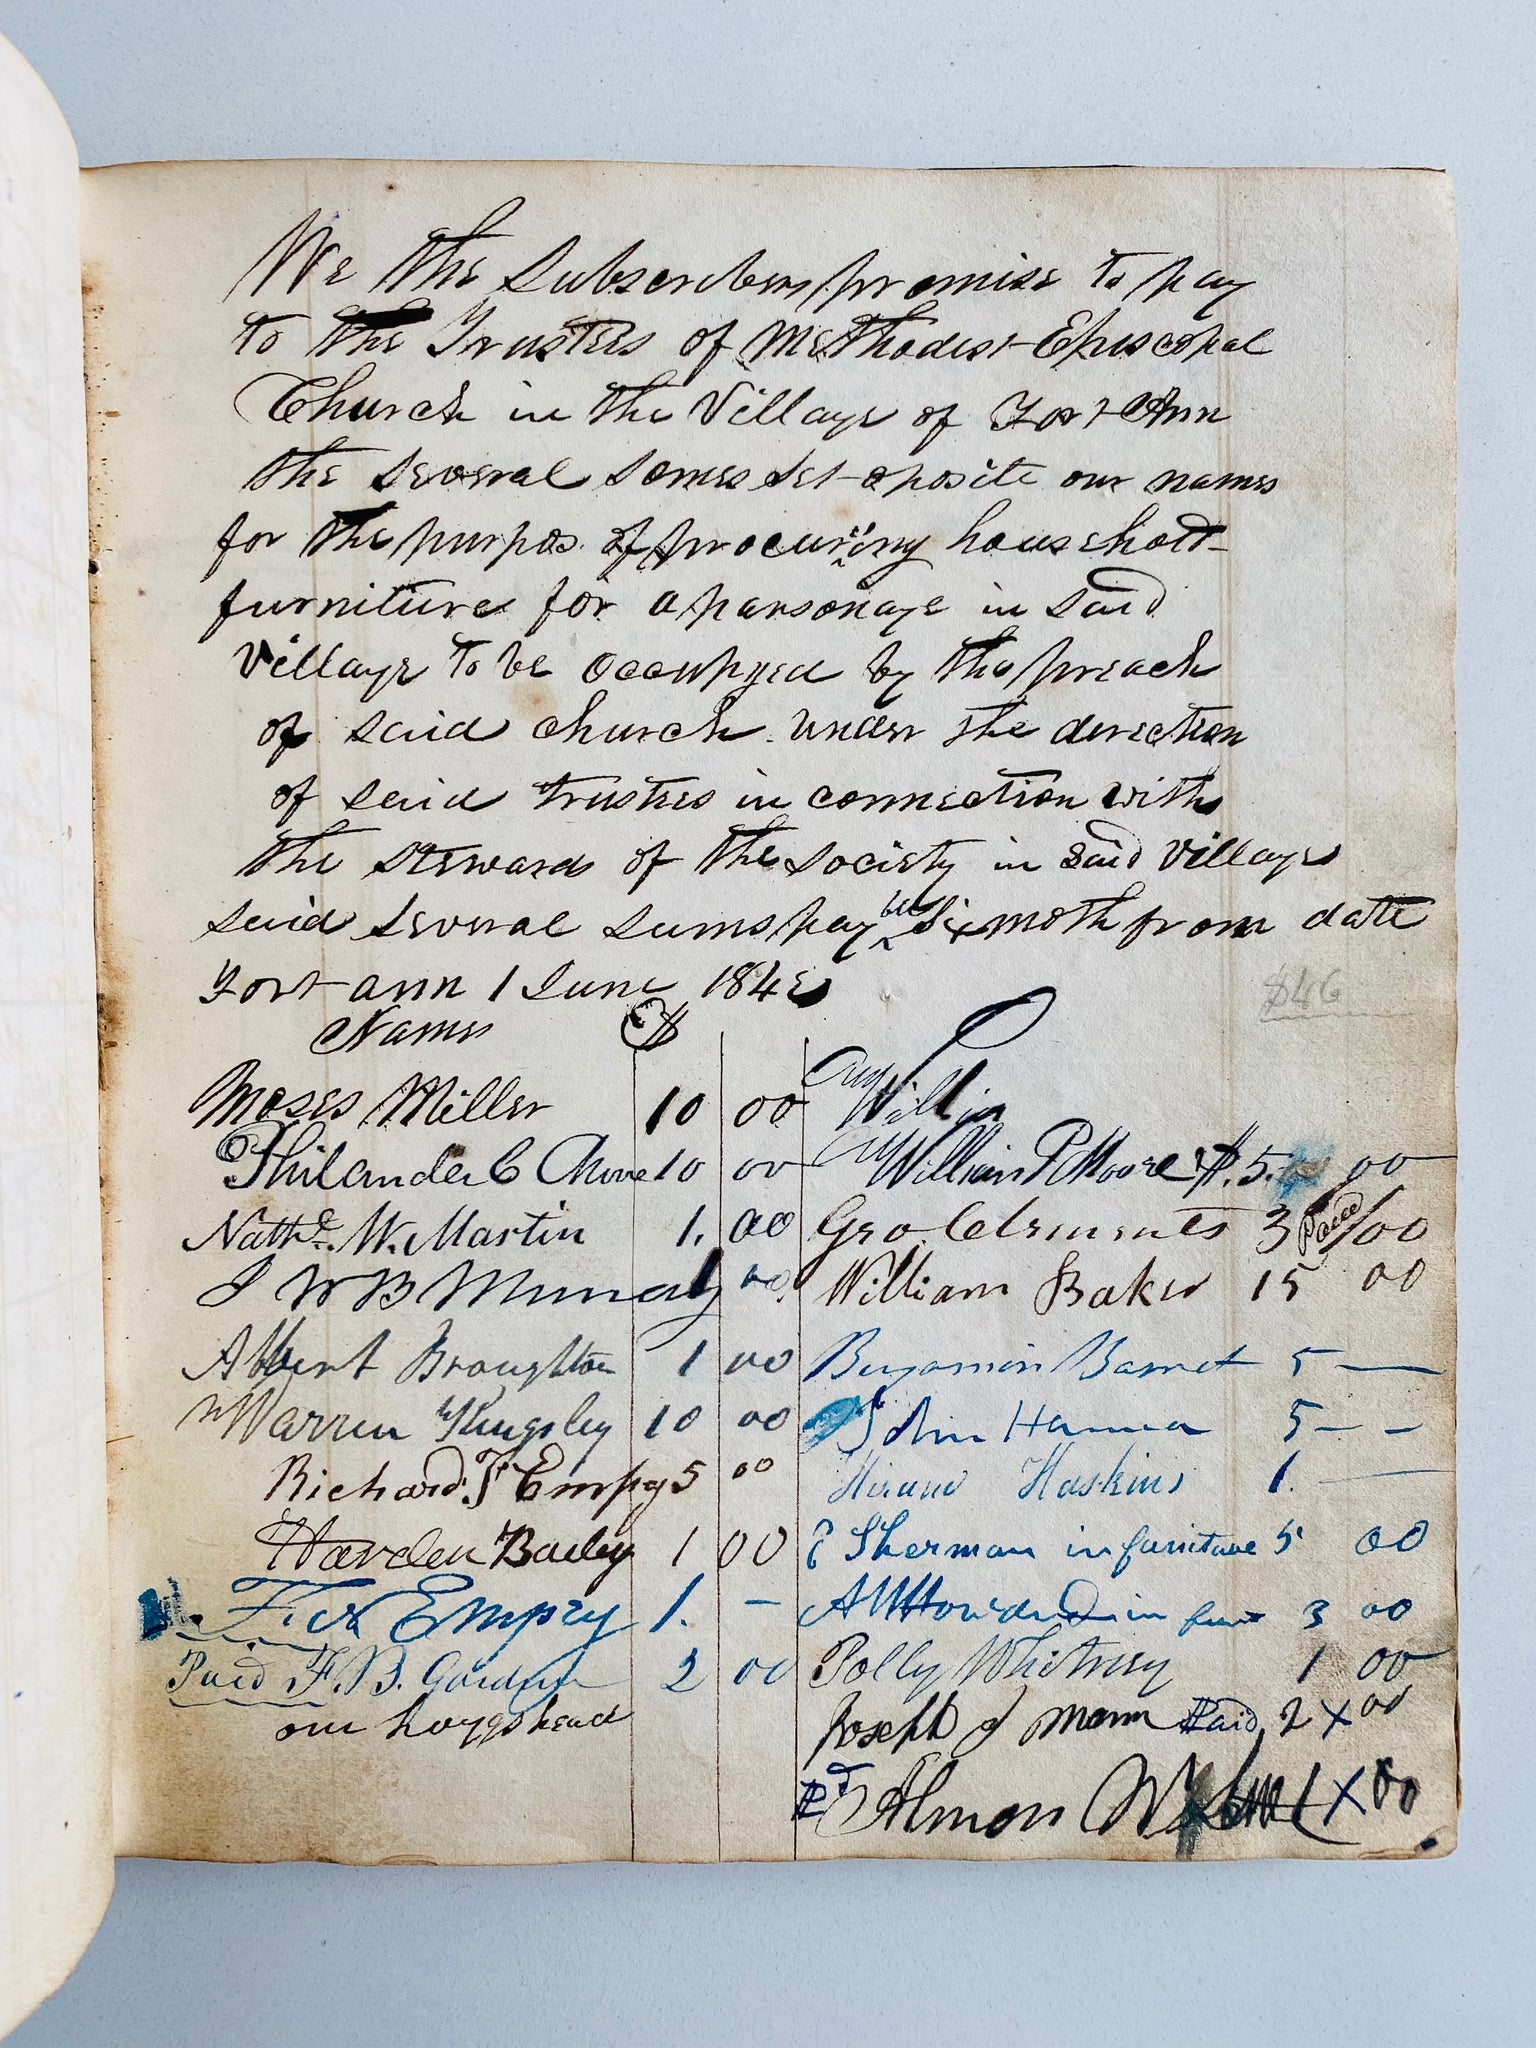 We the Subscribers promise to pay
to the Trustees of Methodist Episcopal
Church in the Village of Fort Ann
the several somes set oposite our names
for the purpos of procuring household
furniture for a parsonage in said
Village to be occupyed by the preach
of said church under the direction
of said trustees in connection with
the stewards of the society in said Village
said several sums pay bll six moth from date
Fort ann 1 June 184
$46
Names $
Moses Miller 10 00
Philander C Moore 10 00
Nathl. W. Martin 1. 00
J W B Murray 1 00
Albert Broughton 1 00
Warren Kingsley 10 00
Richard T Empy 5 00
Harden Bailey 1 00
Empey 1. -
Paid F. B. Gardner 2 00
one hoggshead
William P Moore $.5. 00
Geo. Clements 3 Paid 00
William Baker 15 00
Benjamin Barret 5 —
John Hanna 5 - -
Hiram Haskins 1. —
Sherman in furniture 5 00
A Howard in furn 3 00
Polly Whitney 1 00
Joseph J Mann Paid 2 x 00
Pd Almon 1 x 00